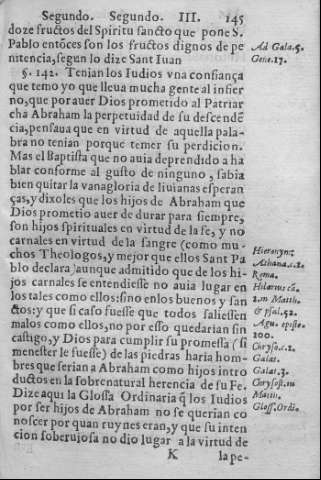 Segundo. Segundo. III. 145
doze fructos del Spiritu sancto que pone S.
Pablo entõces son los fructos dignos de pe
nitencia, segun lo dize Sant Iuan
§. 142. Tenian los Iudios vna confiança
que temo yo que lleua mucha gente al infier
no, que por auer Dios prometido al Patriar
cha Abraham la perpetuidad de su descendē
cia, pensaua que en virtud de aquella pala-
bra no tenian porque temer su perdicion.
Mas el Baptista que no auia deprendido a ha
blar conforme al gusto de ninguno, sabia
bien quitar la vanagloria de liuianas esperan
ças, y dixoles que los hijos de Abraham que
Dios prometio auer de durar para siempre,
son hijos spirituales en virtud de la fe, y no
carnales en virtud de la sangre (como mu-
chos Theologos, y mejor que ellos Sant Pa
blo declara) aunque admitido que de los hi-
jos carnales se entendiesse no auia lugar en
los tales como ellos: sino en los buenos y san
ctos: y que si caso fuesse que todos saliessen
malos como ellos, no por esso quedarian sin
castigo, y Dios para cumplir su promessa (si
menester le fuesse) de las piedras haria hom-
bres que serian a Abraham como hijos intro
ductos en la sobrenatural herencia de su Fe.
Dize aqui la Glossa Ordinaria q̃ los Iudios
por ser hijos de Abraham no se querian co
noscer por quan ruynes eran, y que su inten
cion soberuiosa no dio lugar a la virtud de
K la pe-
Ad Gala. 5.
Gene. 17.
Hieronym:
Athana. c. 2.
Roma.
Hilarius cã.
2. in Matth.
& psal. 52.
Agu. episto.
100.
Chryso. c. 1.
Galat.
Galat. 3.
Chrysost. in
Matth.
Gloss. Ordi.